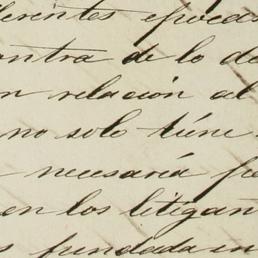 iferentes epocas
contra de lo de
n relación al
no solo túne
necesaria pe
en los litigan
s fundada en